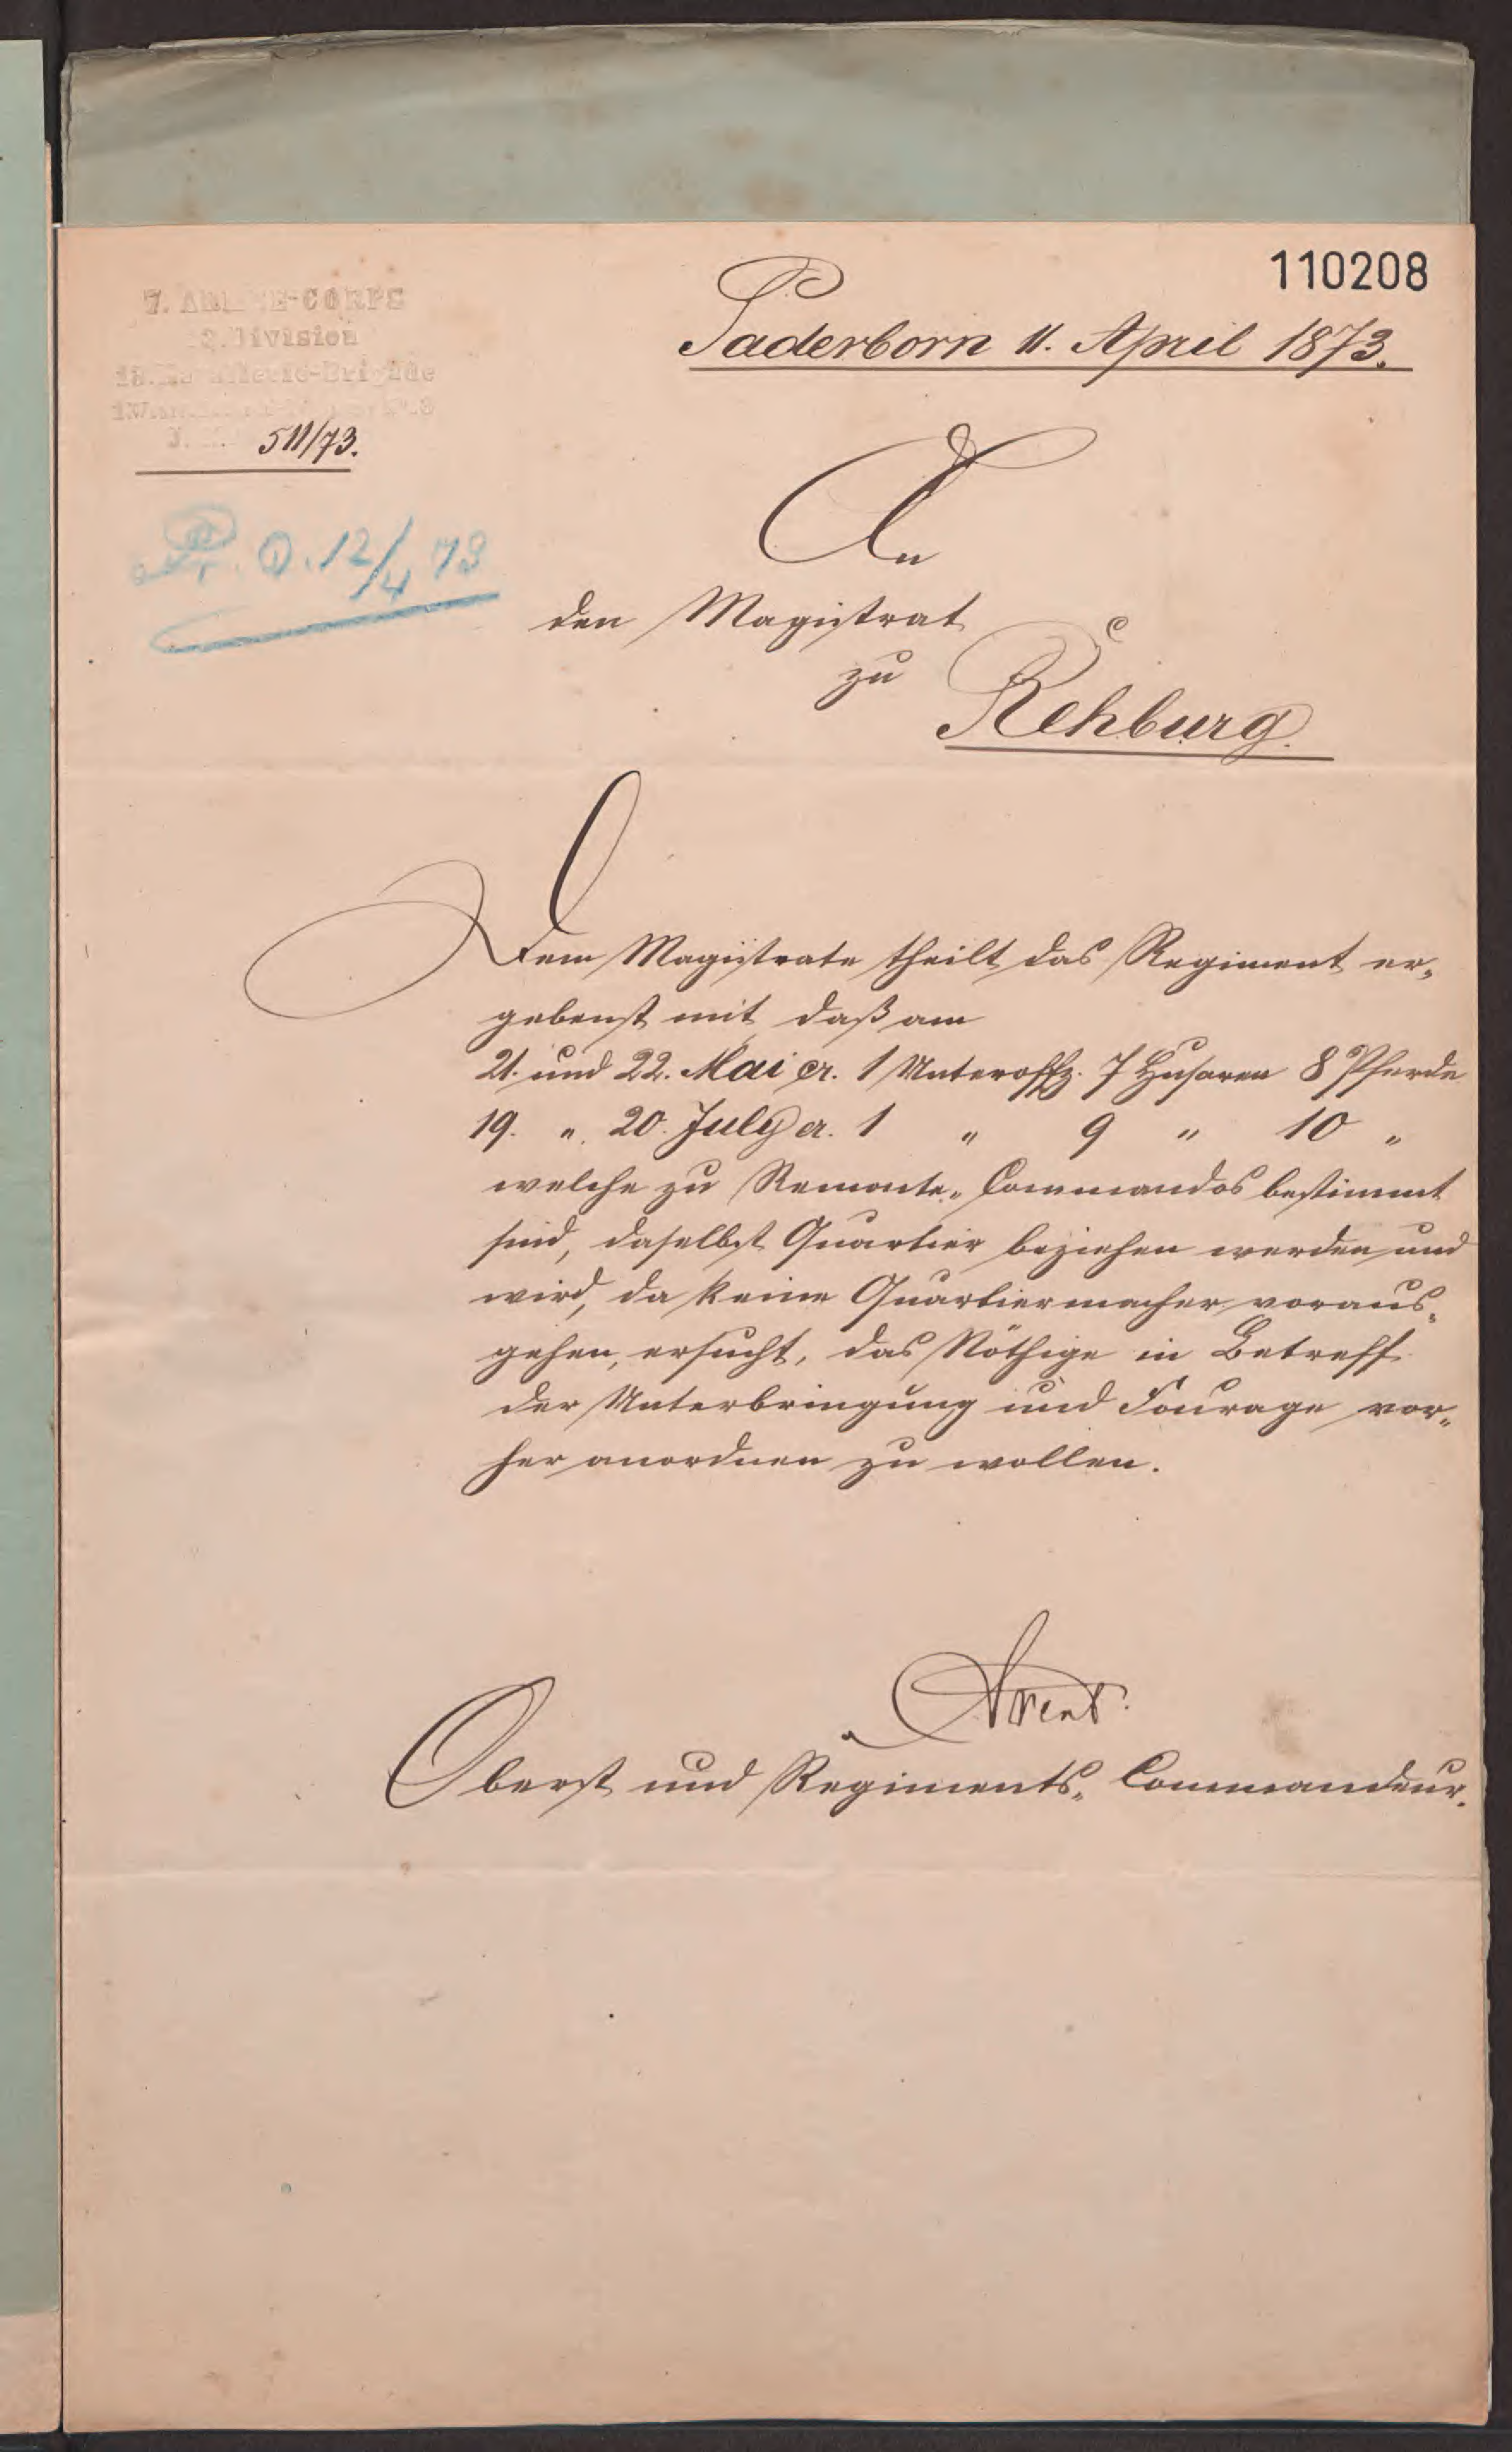 110208
7. ARMEE-CORPS
Division
Brigade
511/73.
Paderborn 11. April 1873.
12/4 73
An
den Magistrat
zu
Rehburg.
Dem Magistrate theilt das Regiment er-
gebenst mit daß am
21. und 22. Mai cr. 1 Unteroffz. 7 Husaren 8 Pferde
19. " 20. July cr. 1 " 9 " 10 "
welche zu Remonte-Commandos bestimmt
sind, daselbst Quartier beziehen werden und
wird, da keine Quartiermacher voraus-
gehen, ersucht, das Nöthige in Betreff
der Unterbringung und Fourage vor-
her anordnen zu wollen.
Arent
Oberst und Regiments-Commandeur.